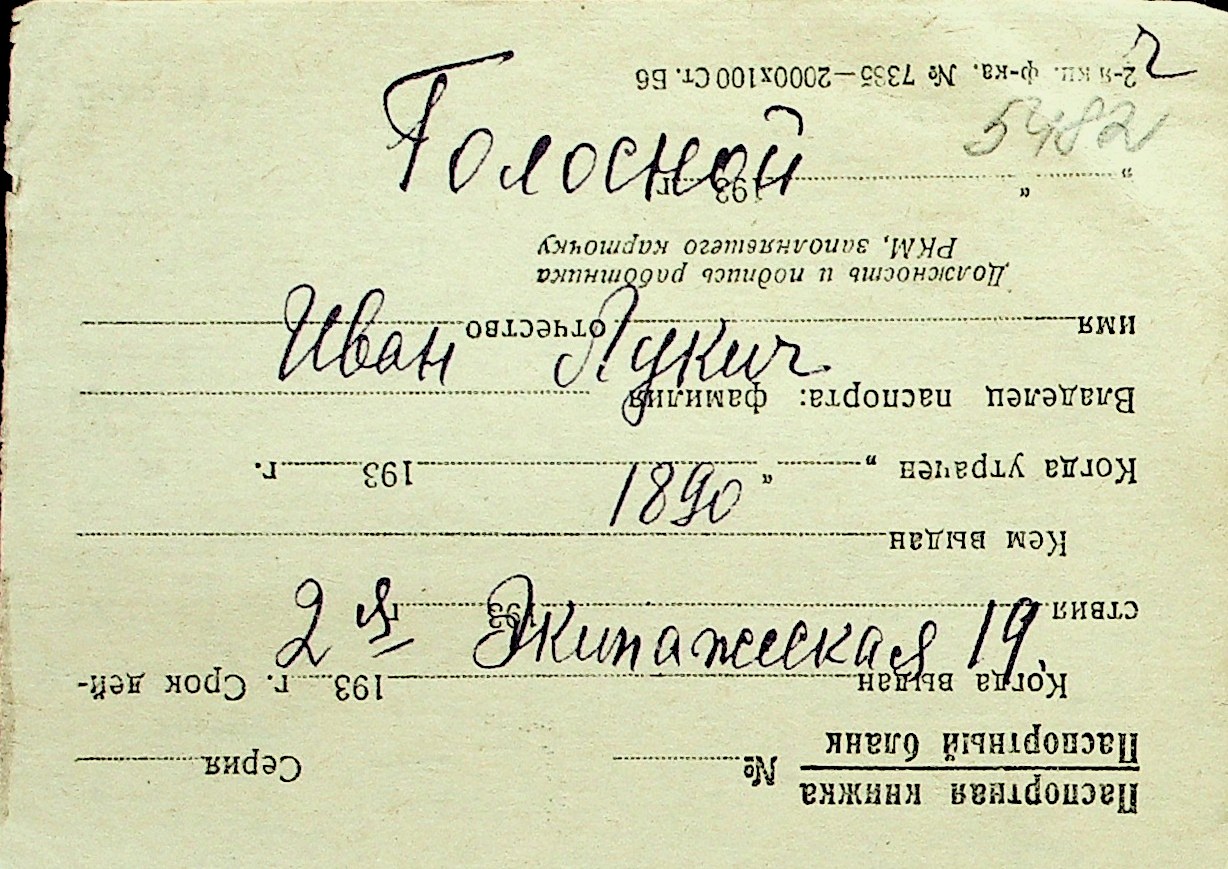 ч
2-я кн. ф-ка. № 7335—2000х100 Ст. Б6
5482
Голосной
„ “ 193 г.
Должность и подпись работника
РКМ, заполнявшего карточку
Иван Лукич
имя отчество
Владелец паспорта: фамилия
Когда утрачен „ “ 193 г.
1890
Кем выдан
2я Экипажеская 19,
ствия 193 г.
Когда выдан 193 г. Срок дей-
Паспортный бланк
Паспортная книжка № Серия